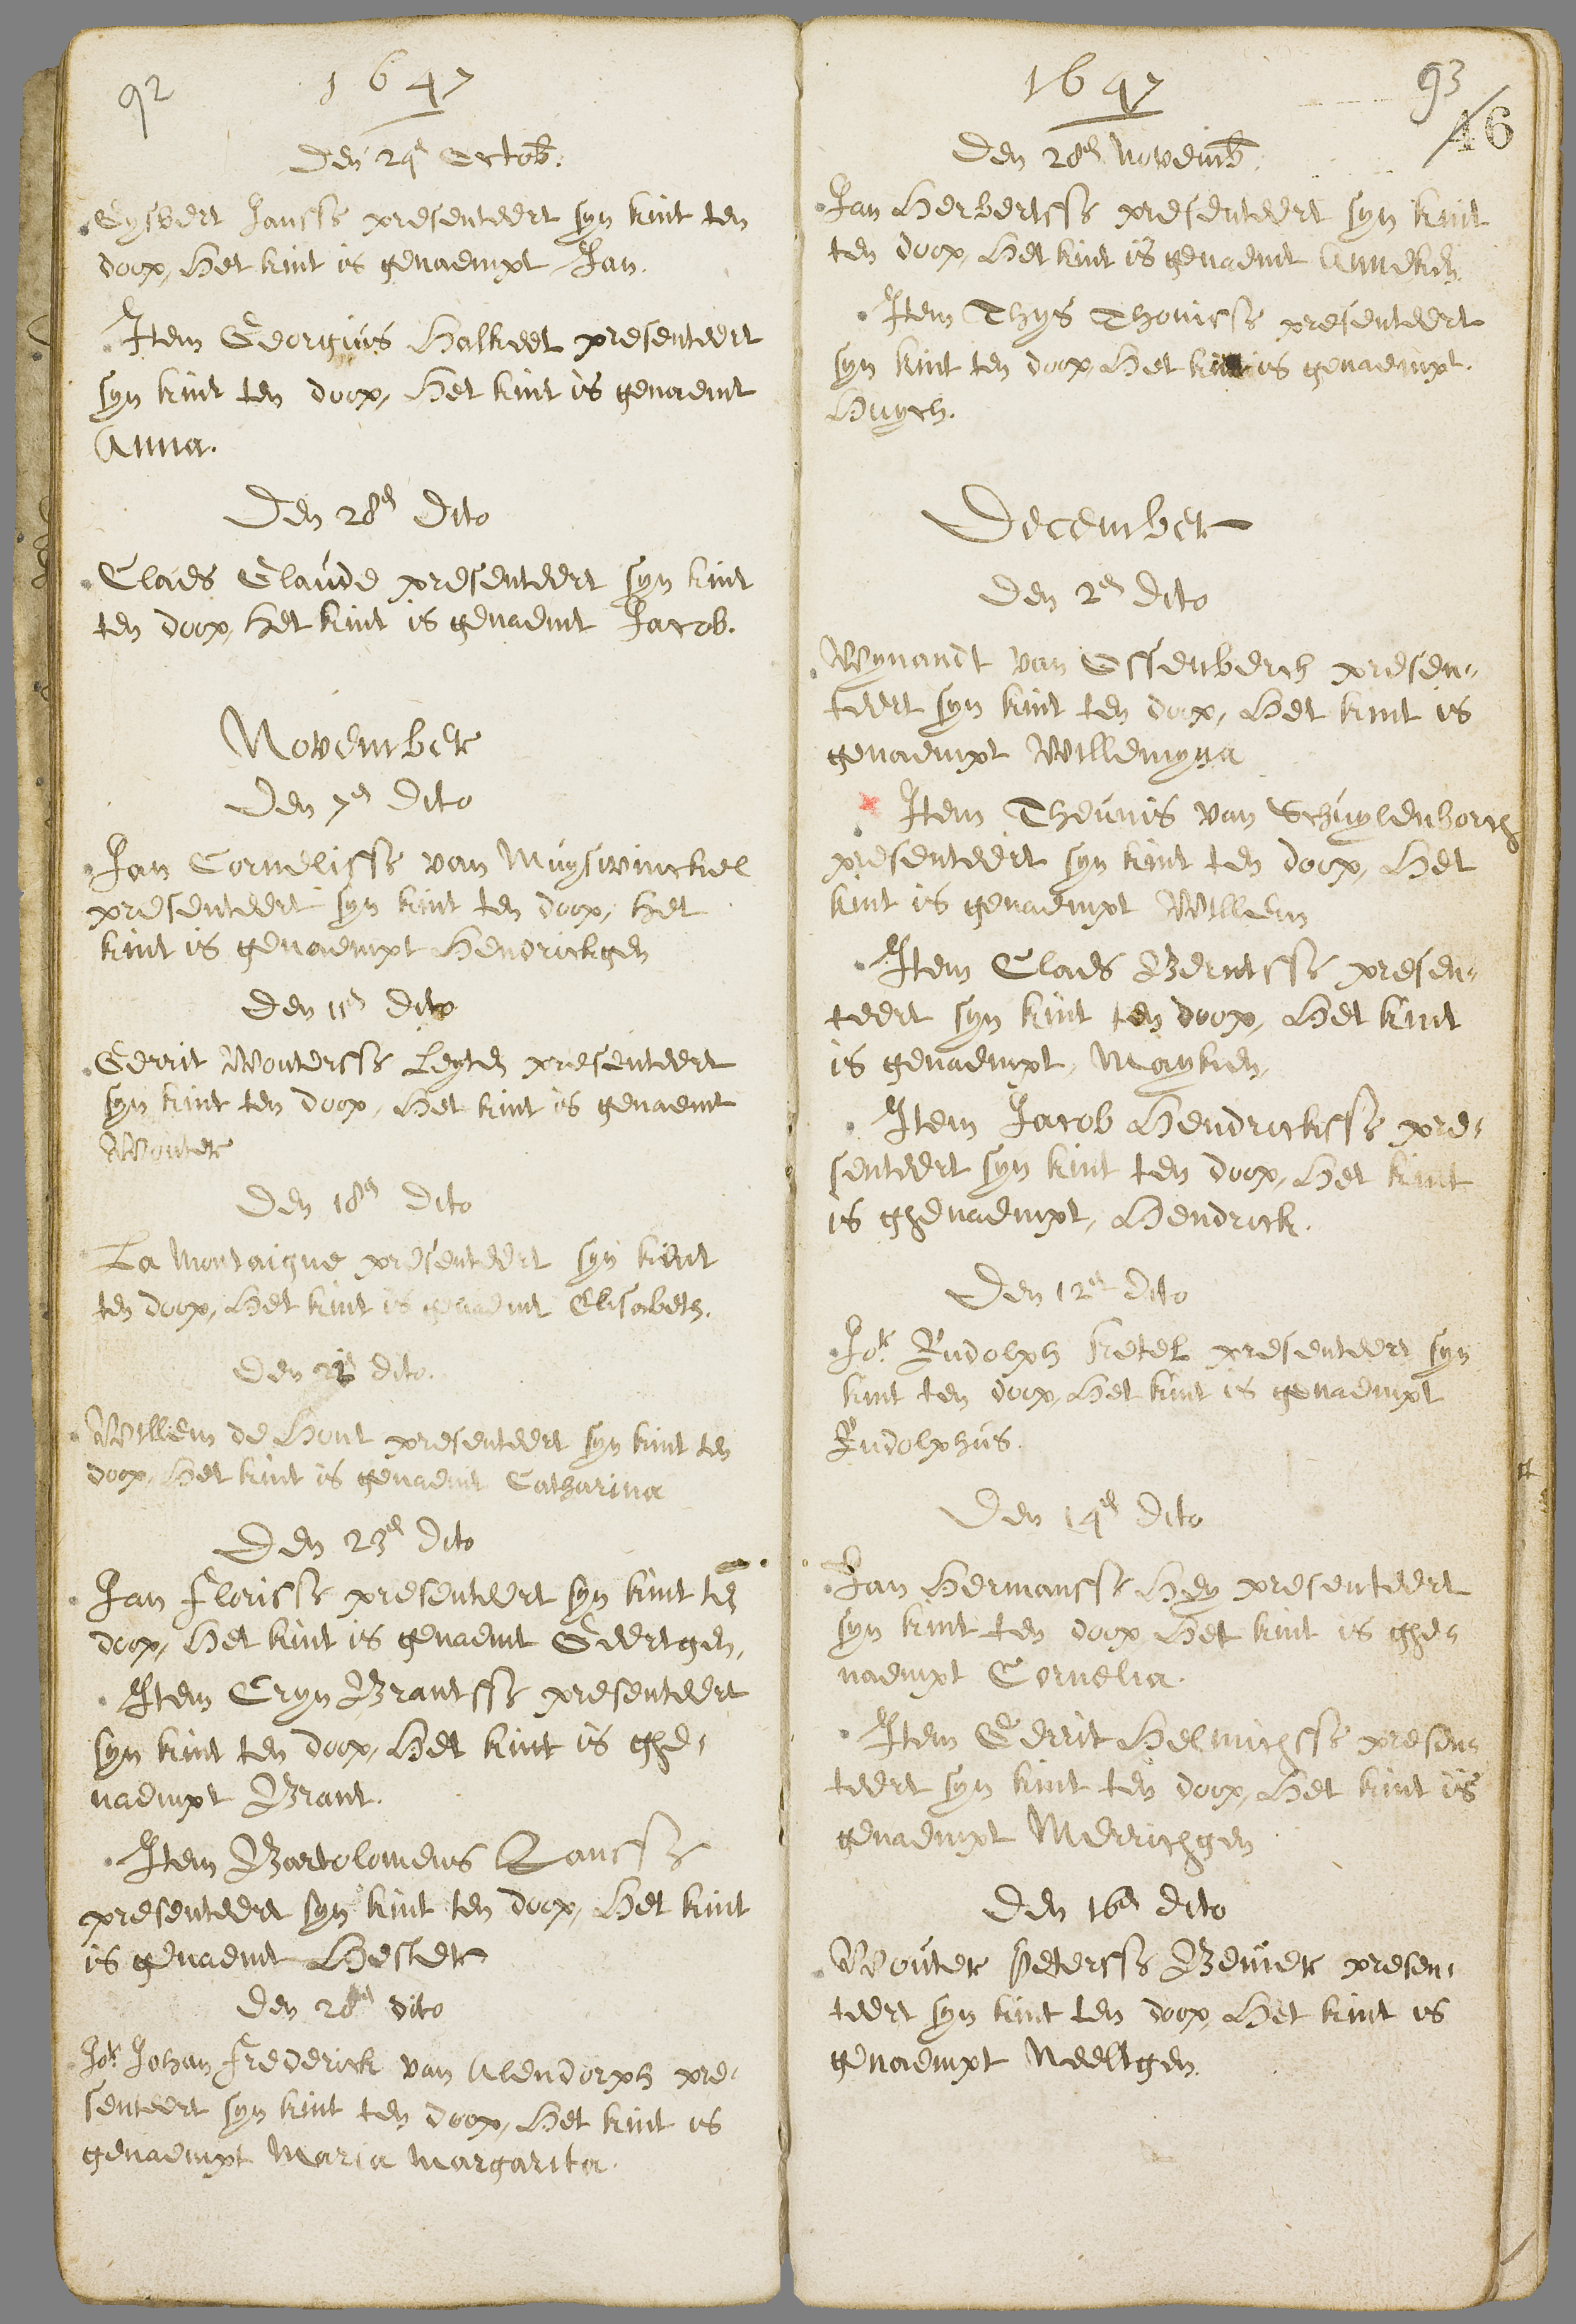 92
1647
Den 24e Octob:
Gysbert Janssz presenteert syn kint ten
doop, Het kint is genaempt Jan.
Item Georgius Halkeet presenteert
syn kint ten doop, Het kint is genaemt
Anna.
Den 28e dito
Claes Glaude presenteert syn kint
ten doop, Het kint is genaemt Jacob.
November
Den 7e dito
Jan Cornelissz van Muyswinckel
presenteert syn kint ten doop, Het
kint is genaempt Hendrickgen
Den 11e dito
Gerrit Woutersz Leyten presenteert
syn kint ten doop, Het kint is genaemt
Wouter
Den 18e dito
La Montaigne presenteert syn kint
ten doop, Het kint is genaemt Elisabeth.
Den dito.
Willem de Hont presenteert syn kint ten
doop, Het kint is genaemt Catharina
Den 23e dito
Jan Florissz presenteert syn kint ten
doop, Het kint is genaemt Geertgen,
Item Cryn Brantssz presenteert
syn kint ten doop, Het kint is ghe-
naempt Brant.
Item Bartolomeus
presenteert syn kint ten doop, Het kint
is genaemt Hester
Den 28e dito
Jor. Johan Frederick van Alendorph pre-
senteert syn kint ten doop, Het kint is
genaempt Maria Margarita.
1647
93
46
Den 28e Novemb.
Jan Herbertssz presenteert syn kint
ten doop, Het kint is genaemt Anneken
Item Thys Thonissz presenteert
syn kint ten doop, Het kint is genaempt.
Huych.
December
Den 2e dito
Wynandt van Essenberch presen-
teert syn kint ten doop, Het kint is
genaempt Willemyna
Item Theunis van Schuylenborch
presenteert syn kint ten doop, Het
kint is genaempt Willem
Item Claes Berntssz presen-
teert syn kint ten doop, Het kint
is genaempt, Mayken,
Item Jacob Hendrickssz pre-
senteert syn kint ten doop, Het kint
is ghenaempt, Hendrick.
Den 12e dito
Jor. Rudolph Ketel presenteert syn
kint ten doop, Het kint is genaempt
Rudolphus.
Den 14e dito
Jan Hermanssz Hey presenteert
syn kint ten doop Het kint is ghe-
naempt Cornelia.
Item Gerrit Helmichssz presen-
teert syn kint ten doop, Het kint is
genaempt Merrichgen
Den 16e dito
Wouter Peterssz Bemer presen-
teert syn kint ten doop, Het kint is
genaempt Neeltgen.